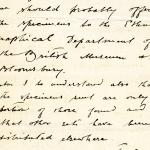 we should probably offer
the specimens to the Ethno
graphical Department of
the British Museum at
Bloomsbury.
Am I to understand also that
the specimens sent are only
portion of those found and
that other sets have been
distributed elsewhere